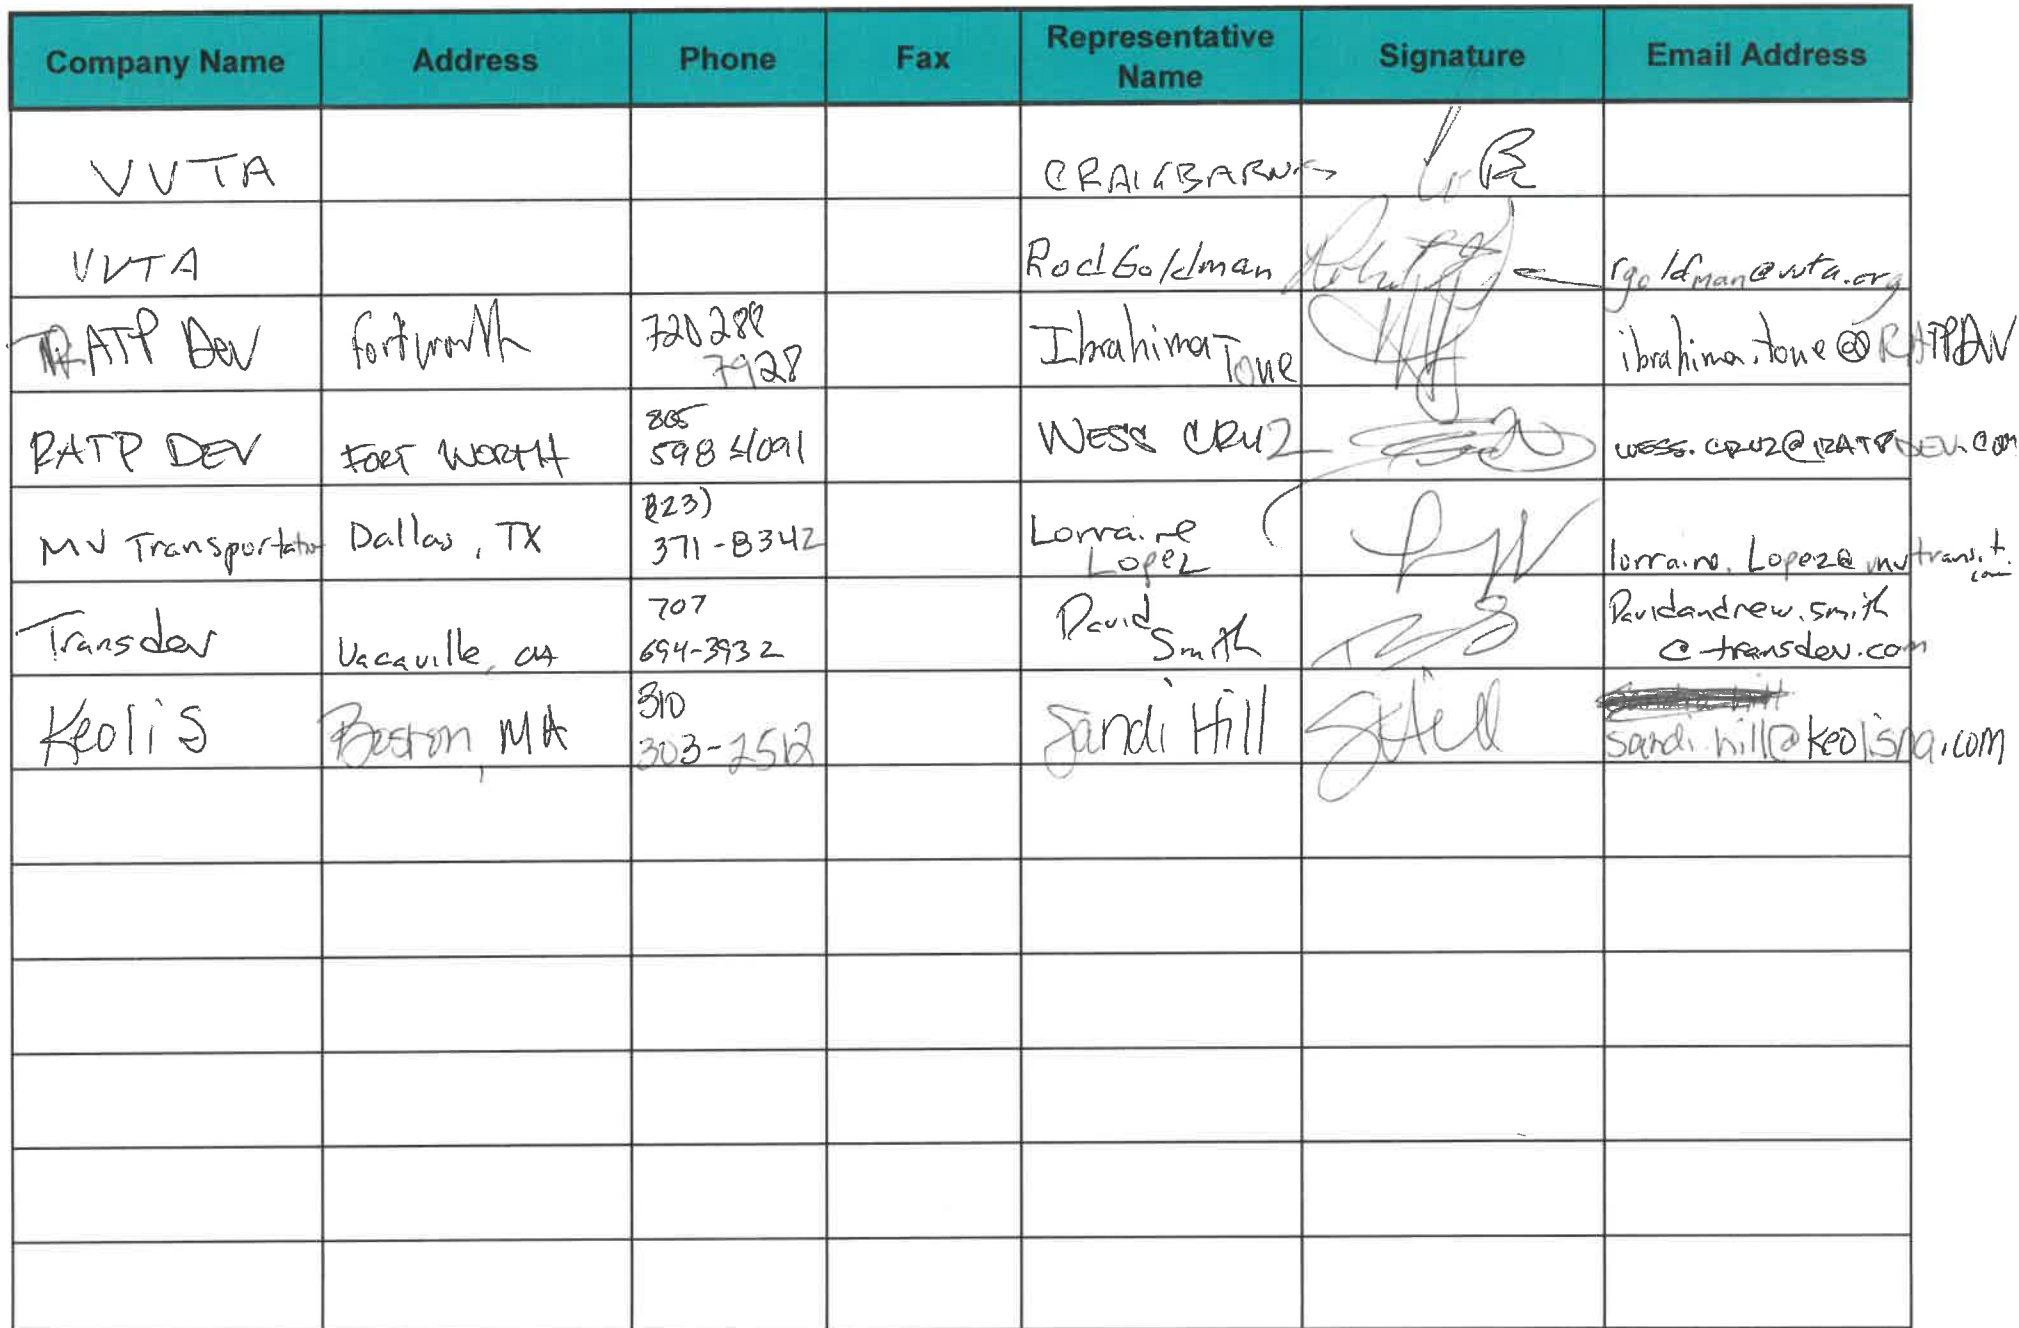 Company Name Address Phone Fax Representative Name Signature Email Address
VVTA CRAIG BARNES
VVTA Rod Goldman rgoldman@vvta.org
RATP Dev Fort worth 720 288 7928 Ibrahima Tone ibrahima.tone@RATPDEV
RATP DEV FORT WORTH 805 598 4091 WESS CRUZ WESS.CRUZ@RATPDEV.COM
MV Transportation Dallas, TX (323) 371-8342 Lorraine Lopez lorraine.Lopez@mvtransit.com
Transdev Vacaville, CA 707 694-3932 David Smith Davidandrew.smith
@transdev.com
Keolis Boston, MA 310 303-2512 Sandi Hill SHill
sandi.hill@keolisna.com